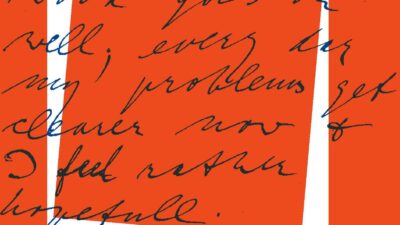 work goes on
well; every day
my problems get
clearer now &
I feel rather
hopefull.